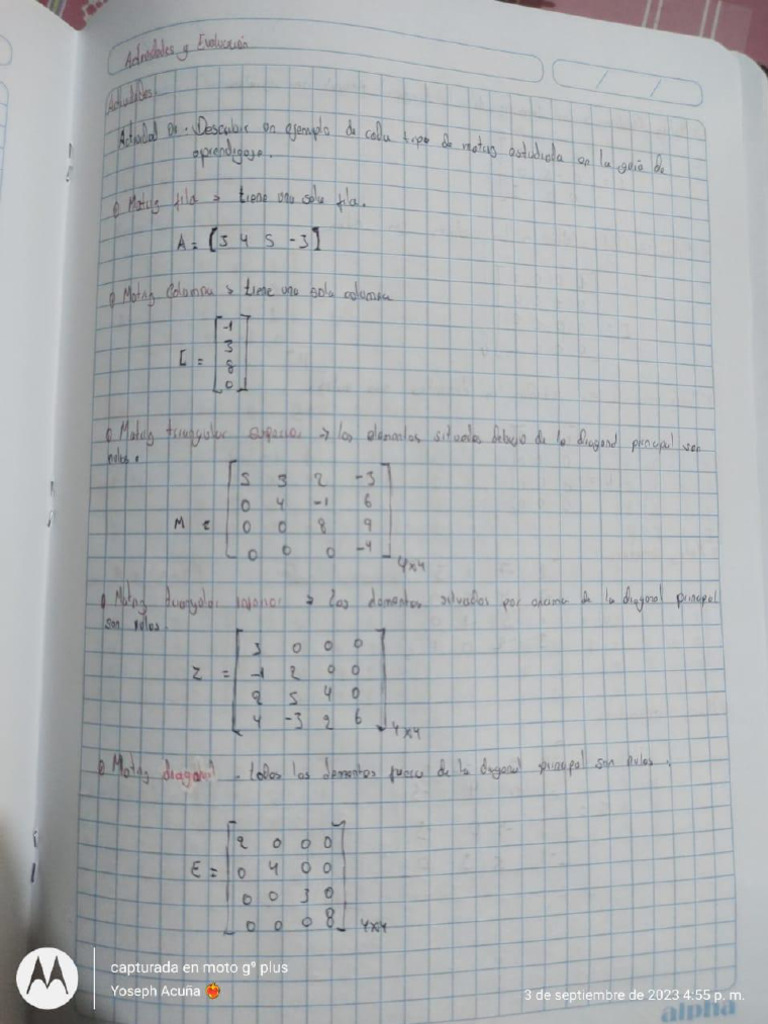 Actividades y Evaluación
Actividades
Actividad 01. Descubrir un ejemplo de cada tipo de matriz estudiada en la guía de
aprendizaje.
Matriz fila → tiene una sola fila.
A = [3 4 5 -3]
Matriz Columna → tiene una sola columna
C =
-1
3
8
0
Matriz triangular superior → los elementos situados debajo de la diagonal principal son
nulos.
M =
5 3 2 -3
0 4 -1 6
0 0 8 9
0 0 0 -4
4x4
Matriz triangular inferior → los elementos situados por encima de la diagonal principal
son nulos.
Z =
3 0 0 0
-1 2 0 0
2 5 4 0
4 -3 2 6
4x4
Matriz diagonal - todos los elementos fuera de la diagonal principal son nulos.
E =
2 0 0 0
0 4 0 0
0 0 3 0
0 0 0 8
4x4
capturada en moto g⁹ plus
Yoseph Acuña
3 de septiembre de 2023 4:55 p. m.
alpha